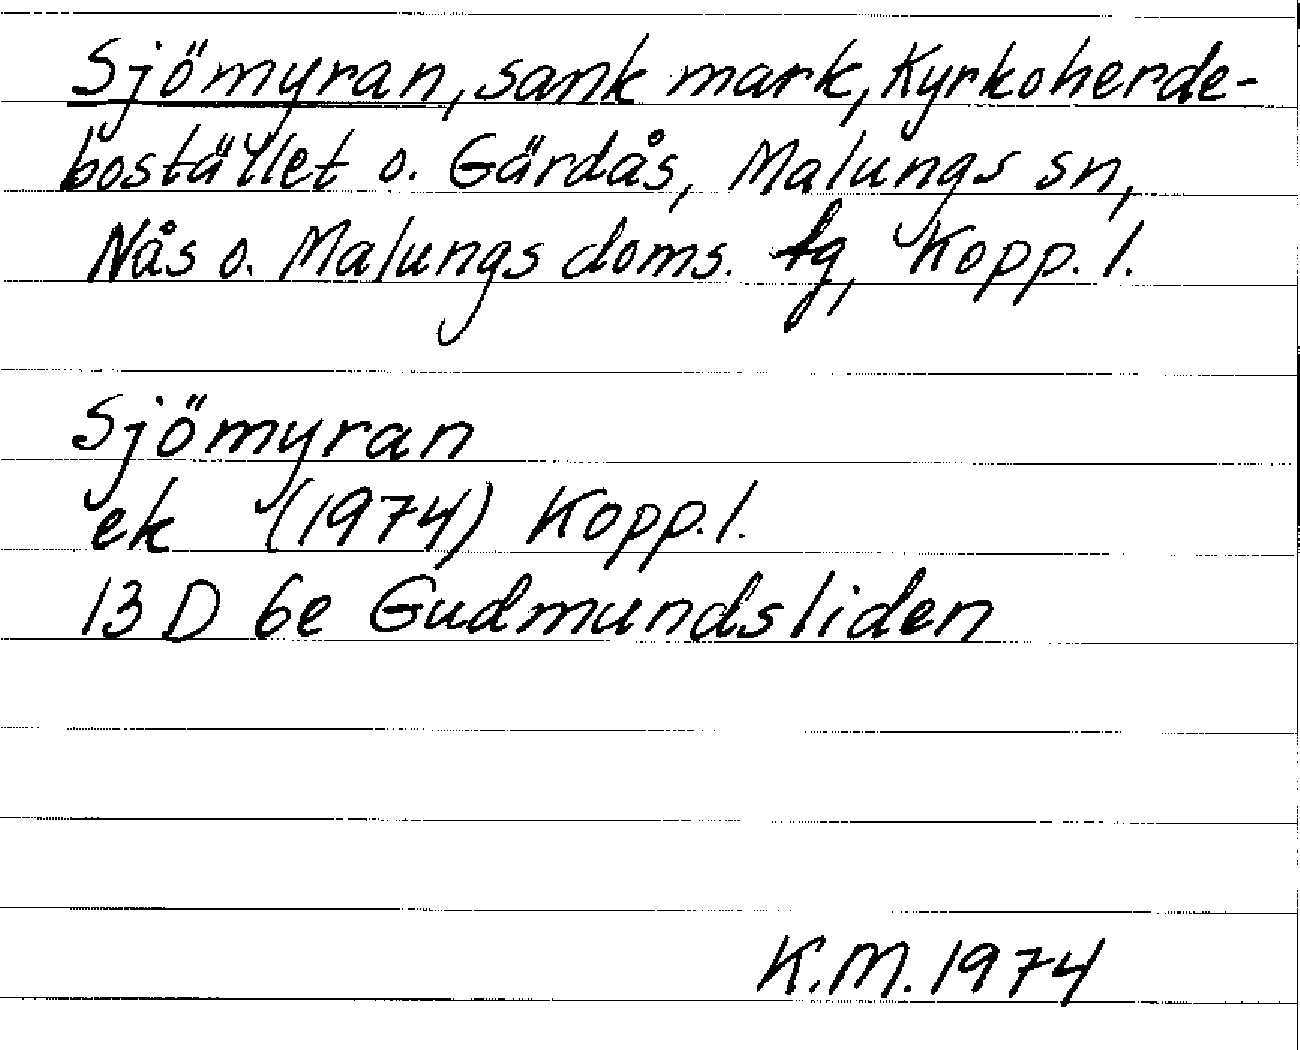 Sjömyran, sank mark, Kyrkoherde-
bostället o. Gärdås, Malungs sn,
Nås o. Malungs doms. fg, Kopp. l.
Sjömyran
ek (1974) Kopp. l.
13 D 6e Gudmundsliden
K.M. 1974